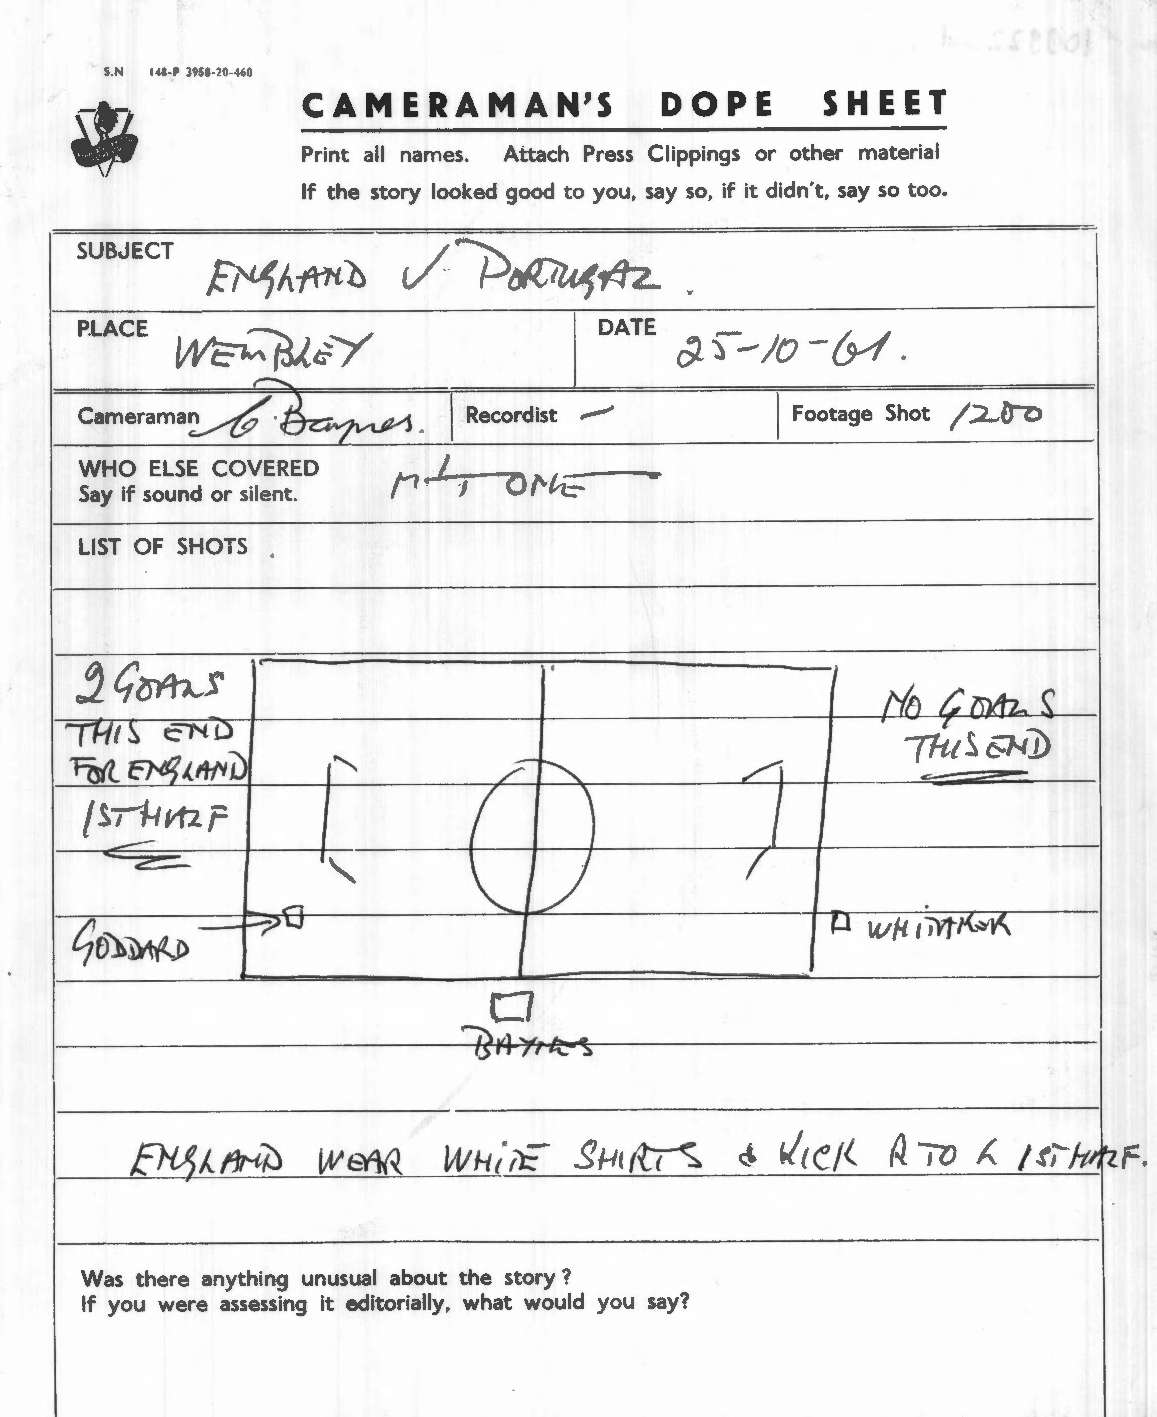 S.N 148-P 3958-20-460
CAMERAMAN'S DOPE SHEET
Print all names. Attach Press Clippings or other material
If the story looked good to you, say so, if it didn't, say so too.
SUBJECT ENGLAND V PORTUGAL.
PLACE WEMBLEY DATE 25-10-61.
Cameraman Baynes. Recordist — Footage Shot 1200
WHO ELSE COVERED
Say if sound or silent.
LIST OF SHOTS
2 GOALS
THIS END
FOR ENGLAND
1ST HALF
NO GOALS
THIS END
GODDARD
WHITAKER
BAYNES
ENGLAND WEAR WHITE SHIRTS & KICK R TO L 1ST HALF.
Was there anything unusual about the story?
If you were assessing it editorially, what would you say?